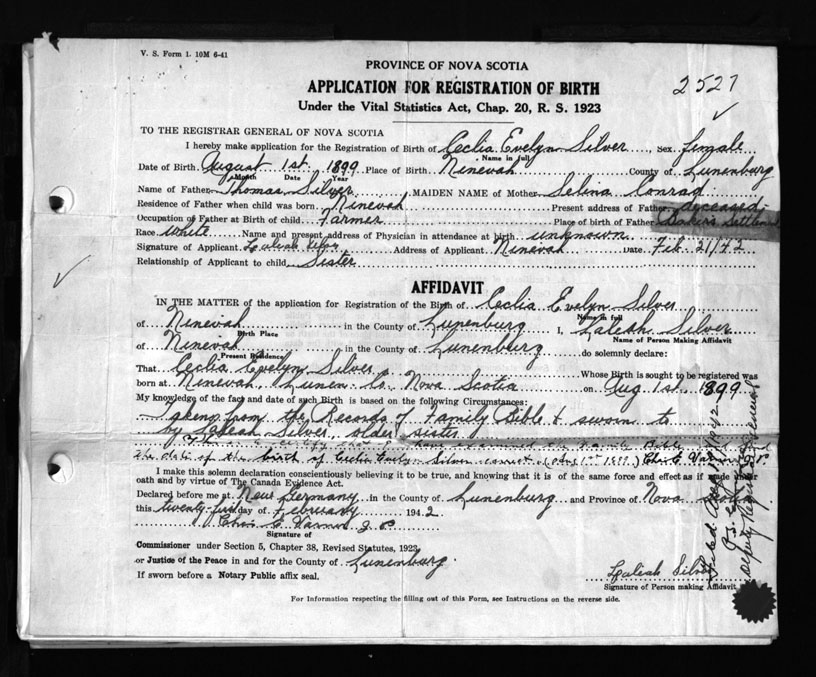 V. S. Form 1. 10M 6-41
PROVINCE OF NOVA SCOTIA
APPLICATION FOR REGISTRATION OF BIRTH
2527
Under the Vital Statistics Act, Chap. 20, R. S. 1923
TO THE REGISTRAR GENERAL OF NOVA SCOTIA
I hereby make application for the Registration of Birth of Ceclia Evelyn Silver, Sex female
Name in full
Date of Birth August 1st. 1899 Place of Birth Ninevah County of Lunenburg
Month Date Year
Name of Father Thomas Silver MAIDEN NAME of Mother Selena Conrad
Residence of Father when child was born Ninevah Present address of Father deceased
Occupation of Father at Birth of child Farmer Place of birth of Father Settlement
Race White Name and present address of Physician in attendance at birth unknown
Signature of Applicant Laleah Silver Address of Applicant Ninevah Date Feb. 21/42
Relationship of Applicant to child Sister
AFFIDAVIT
IN THE MATTER of the application for Registration of the Birth of Ceclia Evelyn Silver
Name in full
of Ninevah in the County of Lunenburg I, Laleah Silver
Birth Place Name of Person Making Affidavit
of Ninevah in the County of Lunenburg do solemnly declare:
Present Residence
That Ceclia Evelyn Silver Whose Birth is sought to be registered was
born at Ninevah, Lunen. Co. Nova Scotia on Aug 1st. 1899
My knowledge of the fact and date of such Birth is based on the following Circumstances:
Taken from the Records of Family Bible & sworn to
by Laleah Silver, older sister
This is to certify that I have examined the Family Bible and find
the date of the birth of Ceclia Evelyn Silver correct
I make this solemn declaration conscientiously believing it to be true, and knowing that it is of the same force and effect as if made under
oath and by virtue of The Canada Evidence Act.
Declared before me at New Germany in the County of Lunenburg and Province of Nova Scotia
this twenty first day of February 1942
Signature of
Commissioner under Section 5, Chapter 38, Revised Statutes, 1923,
or Justice of the Peace in and for the County of Lunenburg.
If sworn before a Notary Public affix seal.
Laleah Silver
Signature of Person making Affidavit
For Information respecting the filling out of this Form, see Instructions on the reverse side.
1942
Deputy Registrar General